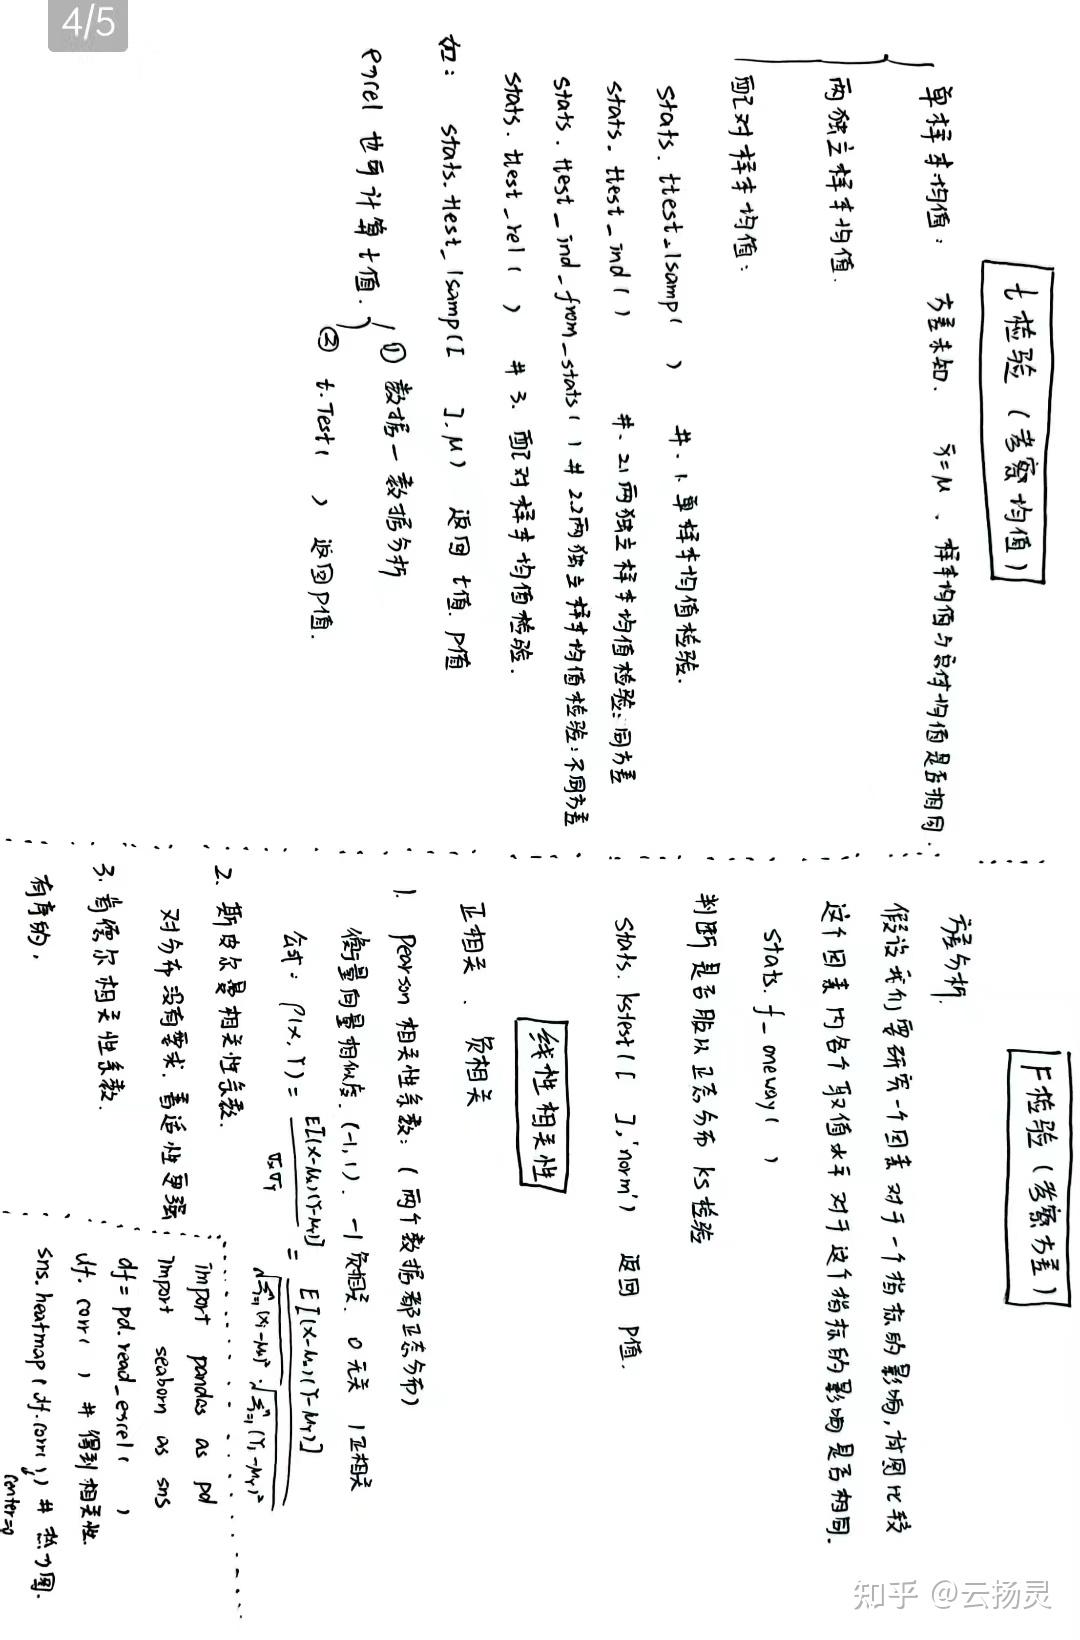 4/5
t检验（考察均值）
单样本均值： 方差未知. x̄=μ、样本均值与总体均值是否相同.
两独立样本均值.
配对样本均值：
stats. ttest_1samp( ) #、1.单样本均值检验.
stats. ttest_ind( ) #、2.1两独立样本均值检验：同方差
stats. ttest_ind_from_stats( ) # 2.2两独立样本均值检验：不同方差
stats. ttest_rel( ) # 3. 配对样本均值检验.
如： stats. ttest_1samp([ ], μ) 返回 t值. P值
excel 也可计算t值. ① 数据—数据分析
② t.Test( ) 返回P值.
F检验（考察方差）
方差分析.
假设我们要研究一个因素对于一个指标的影响,试图比较
这个因素内各个取值水平对于这个指标的影响是否相同.
stats. f_oneway( )
判断是否服从正态分布 ks检验
Stats. kstest([ ],'norm') 返回 P值.
线性相关性
正相关 . 负相关
1. pearson 相关性系数：（两个数据都正态分布）
衡量向量相似度. (-1,1). -1负相关. 0无关 1正相关
公式： ρ(x,Y) = E[(x-μx)(Y-μy)] / σxσY = E[(x-μx)(Y-μY)] / √Σⁿᵢ₌₁(xᵢ-μx)² · √Σⁿᵢ₌₁(Yᵢ-μY)²
2. 斯皮尔曼相关性系数.
对分布没有要求. 普适性更强
3. 肯德尔相关性系数.
有序的.
import pandas as pd
import seaborn as sns
df = pd.read_excel( )
df. corr( ) # 得到相关性.
sns.heatmap(df.corr()) # 热力图.
center=0
知乎 @云扬灵